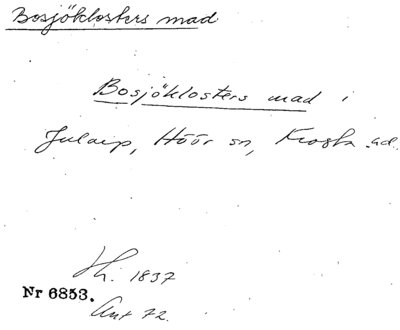 Bosjöklosters mad
Bosjöklosters mad i
Jularp, Höör sn, Frosta hd.
Hh. 1837
Nr 6853.
Ant 72.